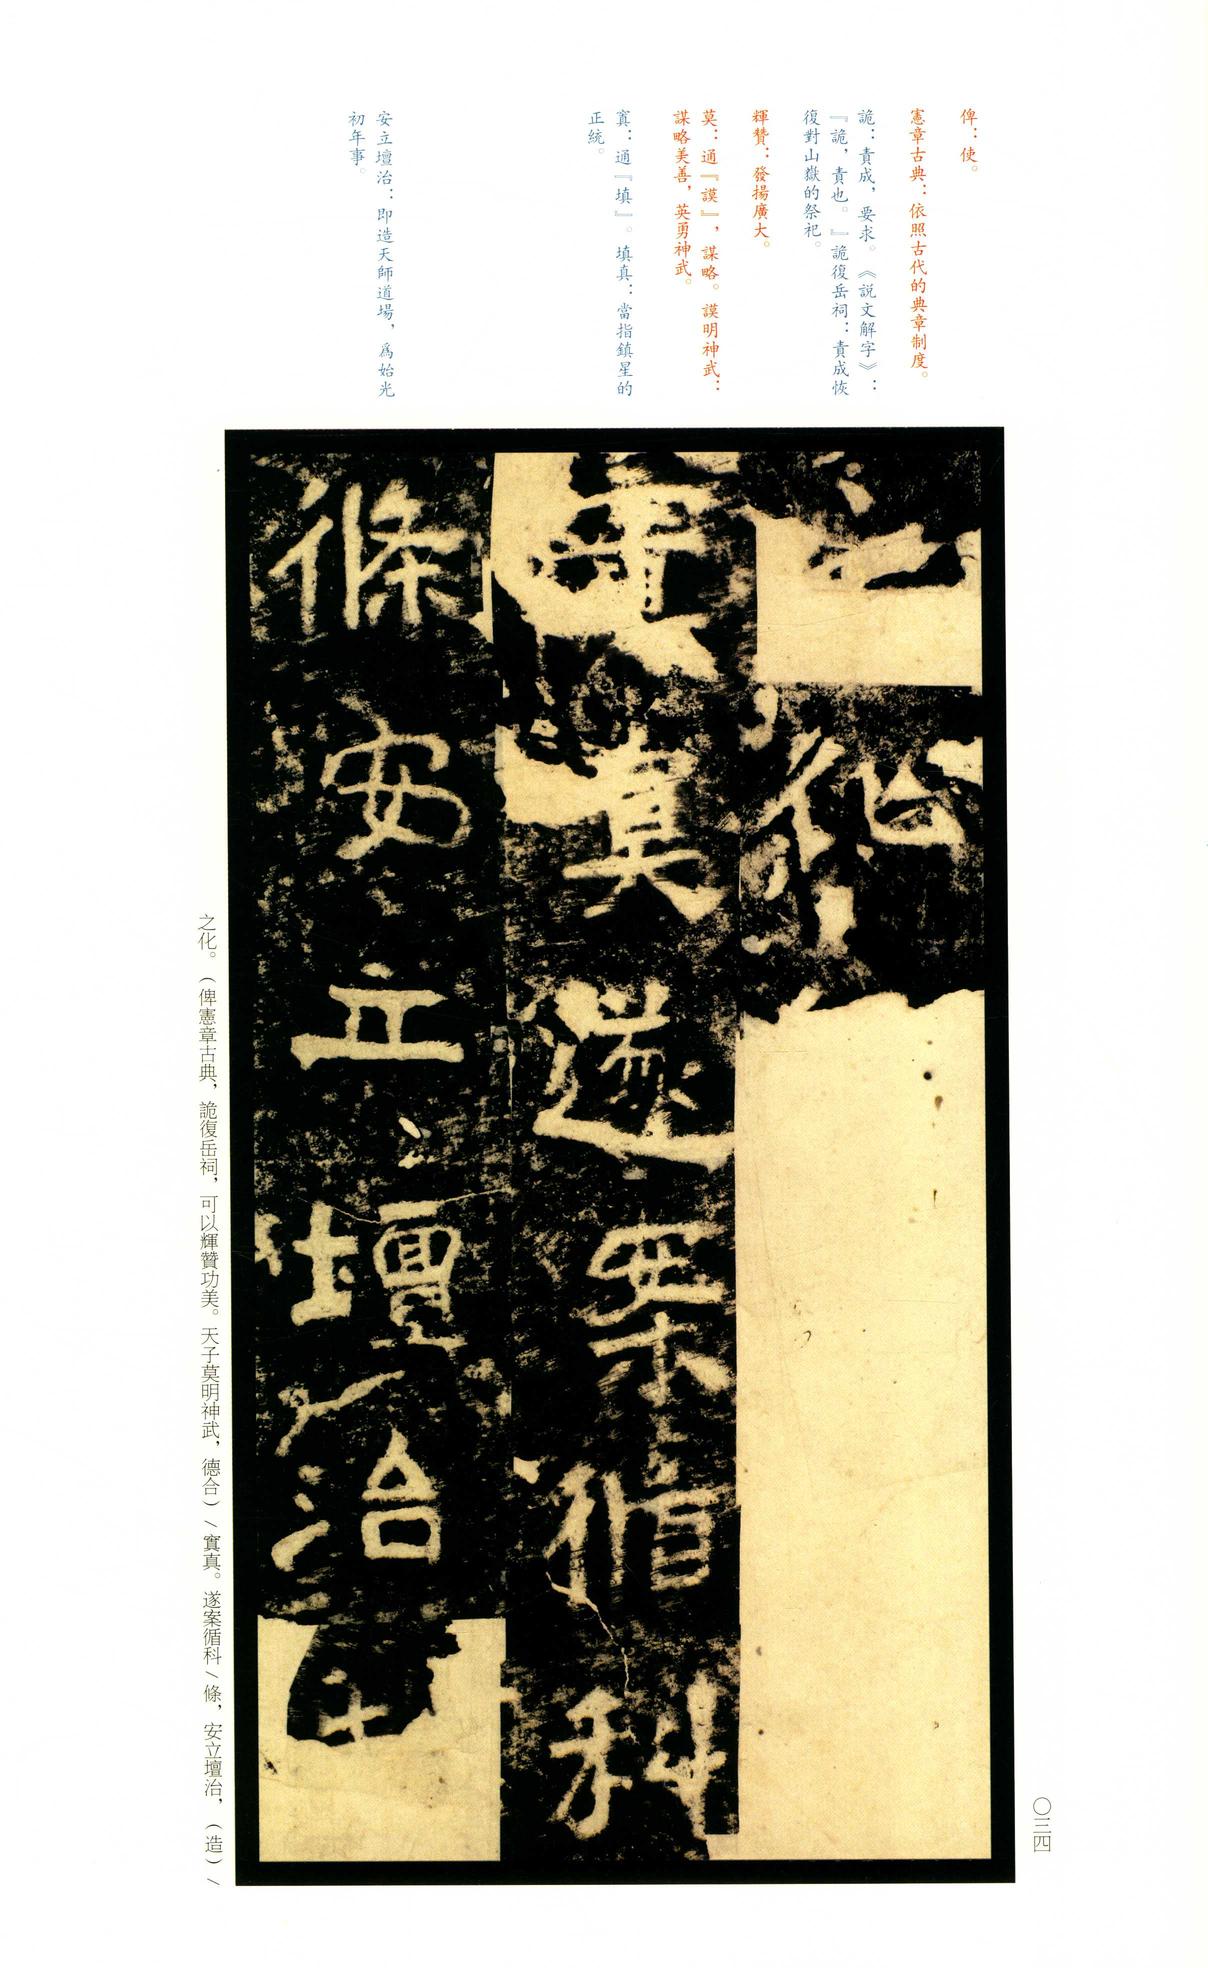 俾：使。
憲章古典：依照古代的典章制度。
詭：責成，要求。《説文解字》：
『詭，責也。』詭復岳祠：責成恢
復對山嶽的祭祀。
輝贊：發揚廣大。
莫：通『謨』，謀略。謨明神武：
謀略美善，英勇神武。
寘：通『填』。填真：當指鎮星的
正統。
安立壇治：即造天師道場，爲始光
初年事。
之化
真遂案循科
條安立壇治
之化。（俾憲章古典，詭復岳祠，可以輝贊功美。天子莫明神武，德合）/寘真。遂案循科/條，安立壇治，（造）/
〇三四